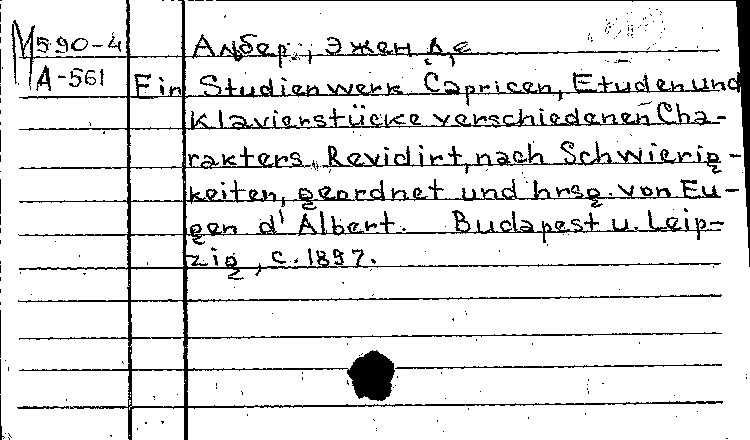 М590-4
А-561
Албер, Эжен д,е
Ein Studienwerk Capricen, Etuden und
Klavierstücke verschiedenen Cha-
rakters. Revidirt, nach Schwierig-
keiten, geordnet und hrsg. von Eu-
gen d'Albert. Budapest u. Leip-
zig, c. 1897.